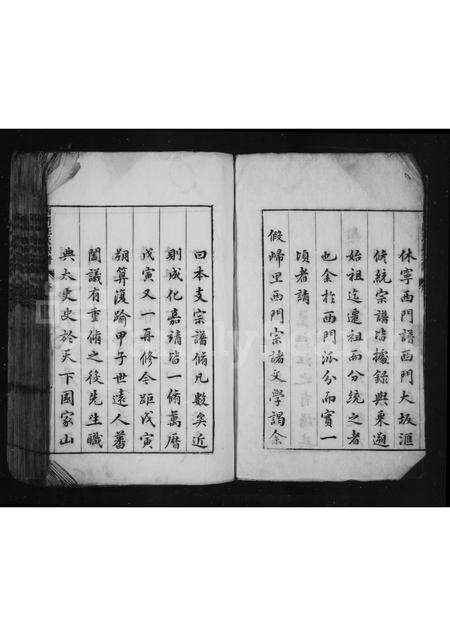 休寧西門譜西門大坂滙
脩統宗譜皆據錄與栗溯
始祖迄遷祖而分繞之者
也金於西門派分而實一
頃者請
假歸里西門宗諸文學謁余
曰本支宗譜脩凡數矣近
則成化嘉靖皆一脩萬曆
戊寅又一再修今距戊寅
朔算復踰甲子世遠人蕃
闔議有重脩之役先生職
典太史史於天下國家山